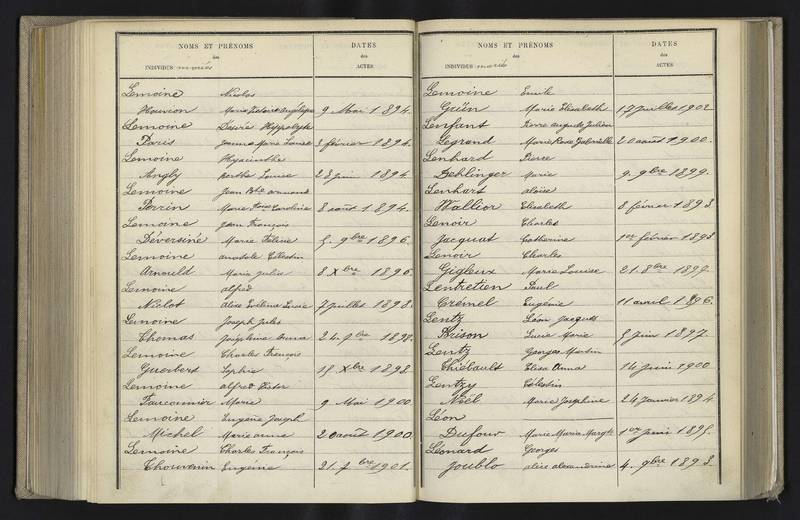 NOMS ET PRÉNOMS
des
INDIVIDUS mariés
DATES
des
ACTES
Lemoine Nicolas
Houvion Marie Victoire Angélique 9 Mai 1894.
Lemoine Désiré Hippolyte
Paris Jeanne Marie Louise 3 février 1894.
Lemoine Hyacinthe
Angly Berthe Louise 23 juin 1894
Lemoine Jean Bte Armand
Perrin Marie Caroline 8 août 1894.
Lemoine Jean François
Déversiné Marie Félicie 5. 9bre 1896.
Lemoine Anatole Célestin
Arnould Marie Julie 8 Xbre 1896.
Lemoine Alfred
Niclot Alise Lucie 7 juillet 1898.
Lemoine Joseph Jules
Thomas Joséphine 24. 9bre 1898.
Lemoine Charles François
Guerbert Sophie 15 Xbre 1898.
Lemoine Alfred Victor
Fauconnier Marie 9 Mai 1900
Lemoine Eugène Joseph
Michel Marie Anna 20 août 1900.
Lemoine Charles François
Chouvenin Eugénie 21. 7bre 1901.
NOMS ET PRÉNOMS
des
INDIVIDUS mariés
DATES
des
ACTES
Lemoine Emile
Grün Marie Elisabeth 17 juillet 1902
Lenfant Pierre Auguste Julien
Legrand Marie Rose Gabrielle 20 août 1900.
Lenhard Pierre
Dehlinger Marie 9. 9bre 1899.
Lenhart Aloïse
Wallior Elisabeth 8 février 1893
Lenoir Charles
Jacquat Catherine 1er février 1893
Lenoir Charles
Gigleux Marie Louise 21. 8bre 1897.
Lentretien Paul
Crémel Eugénie 11 avril 1896.
Lentz Léon Jacques
Brison Lucie Marie 5 juin 1897.
Lentz Georges Martin
Thiébault Elise Anna 14 juin 1900
Lentzy Célestin
Noël Marie Joséphine 24 janvier 1894
Léon
Dufour Marie Maria Margte 1er juin 1895.
Léonard Georges
Joublo Alice Alexandrine 4. 9bre 1893.